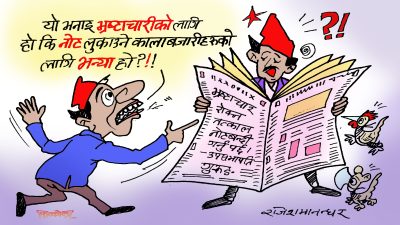 यो भनाइ भ्रष्टाचारीको लागि
हो कि नोट लुकाउने कालाबजारीहरूको
लागि भन्या हो?!!
?!
भ्रष्टाचार
रोक्न
तत्काल
नोटबन्दी
गर्नु पर्छ।
उपसभापति
गुरूङ
राजेशमानन्धर